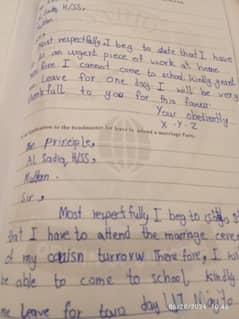 Al Sadiq H/SS,
Multan.
Sir,
Most respectfully I beg to state that I have
an urgent piece of work at home
fore I cannot come to school. kindly grant
Leave for one day. I will be very
thankfull to you for this favour.
Your obediently
X-Y-Z
application to the headmaster for leave to attend a marriage Party.
The principle,
AL Sadiq, H/SS,
Multan.
Sir,
Most respectfully I beg to
that I have to attend the marriage cerem
of my cousin turrorw There fore, I will
be able to come to school kindly
me leave for two day
05/20/2024 10:45